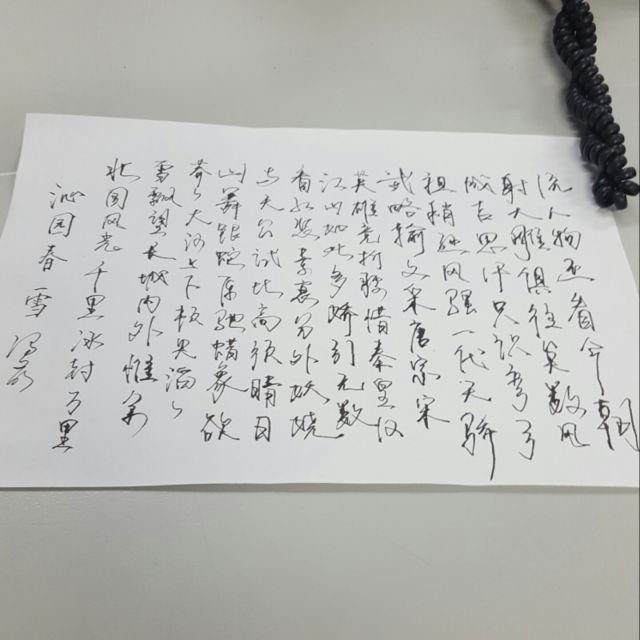 沁园春 雪
北国风光千里冰封万里
雪飘望长城内外惟余
莽々大河上下顿失滔々
山舞银蛇原驰蜡象欲
与天公试比高须晴日
看红装素裹分外妖娆
江山如此多娇引无数
英雄竞折腰惜秦皇汉
武略输文采唐宗宋
祖稍逊风骚一代天骄
成吉思汗只识弯弓
射大雕俱往矣数风
流人物还看今朝